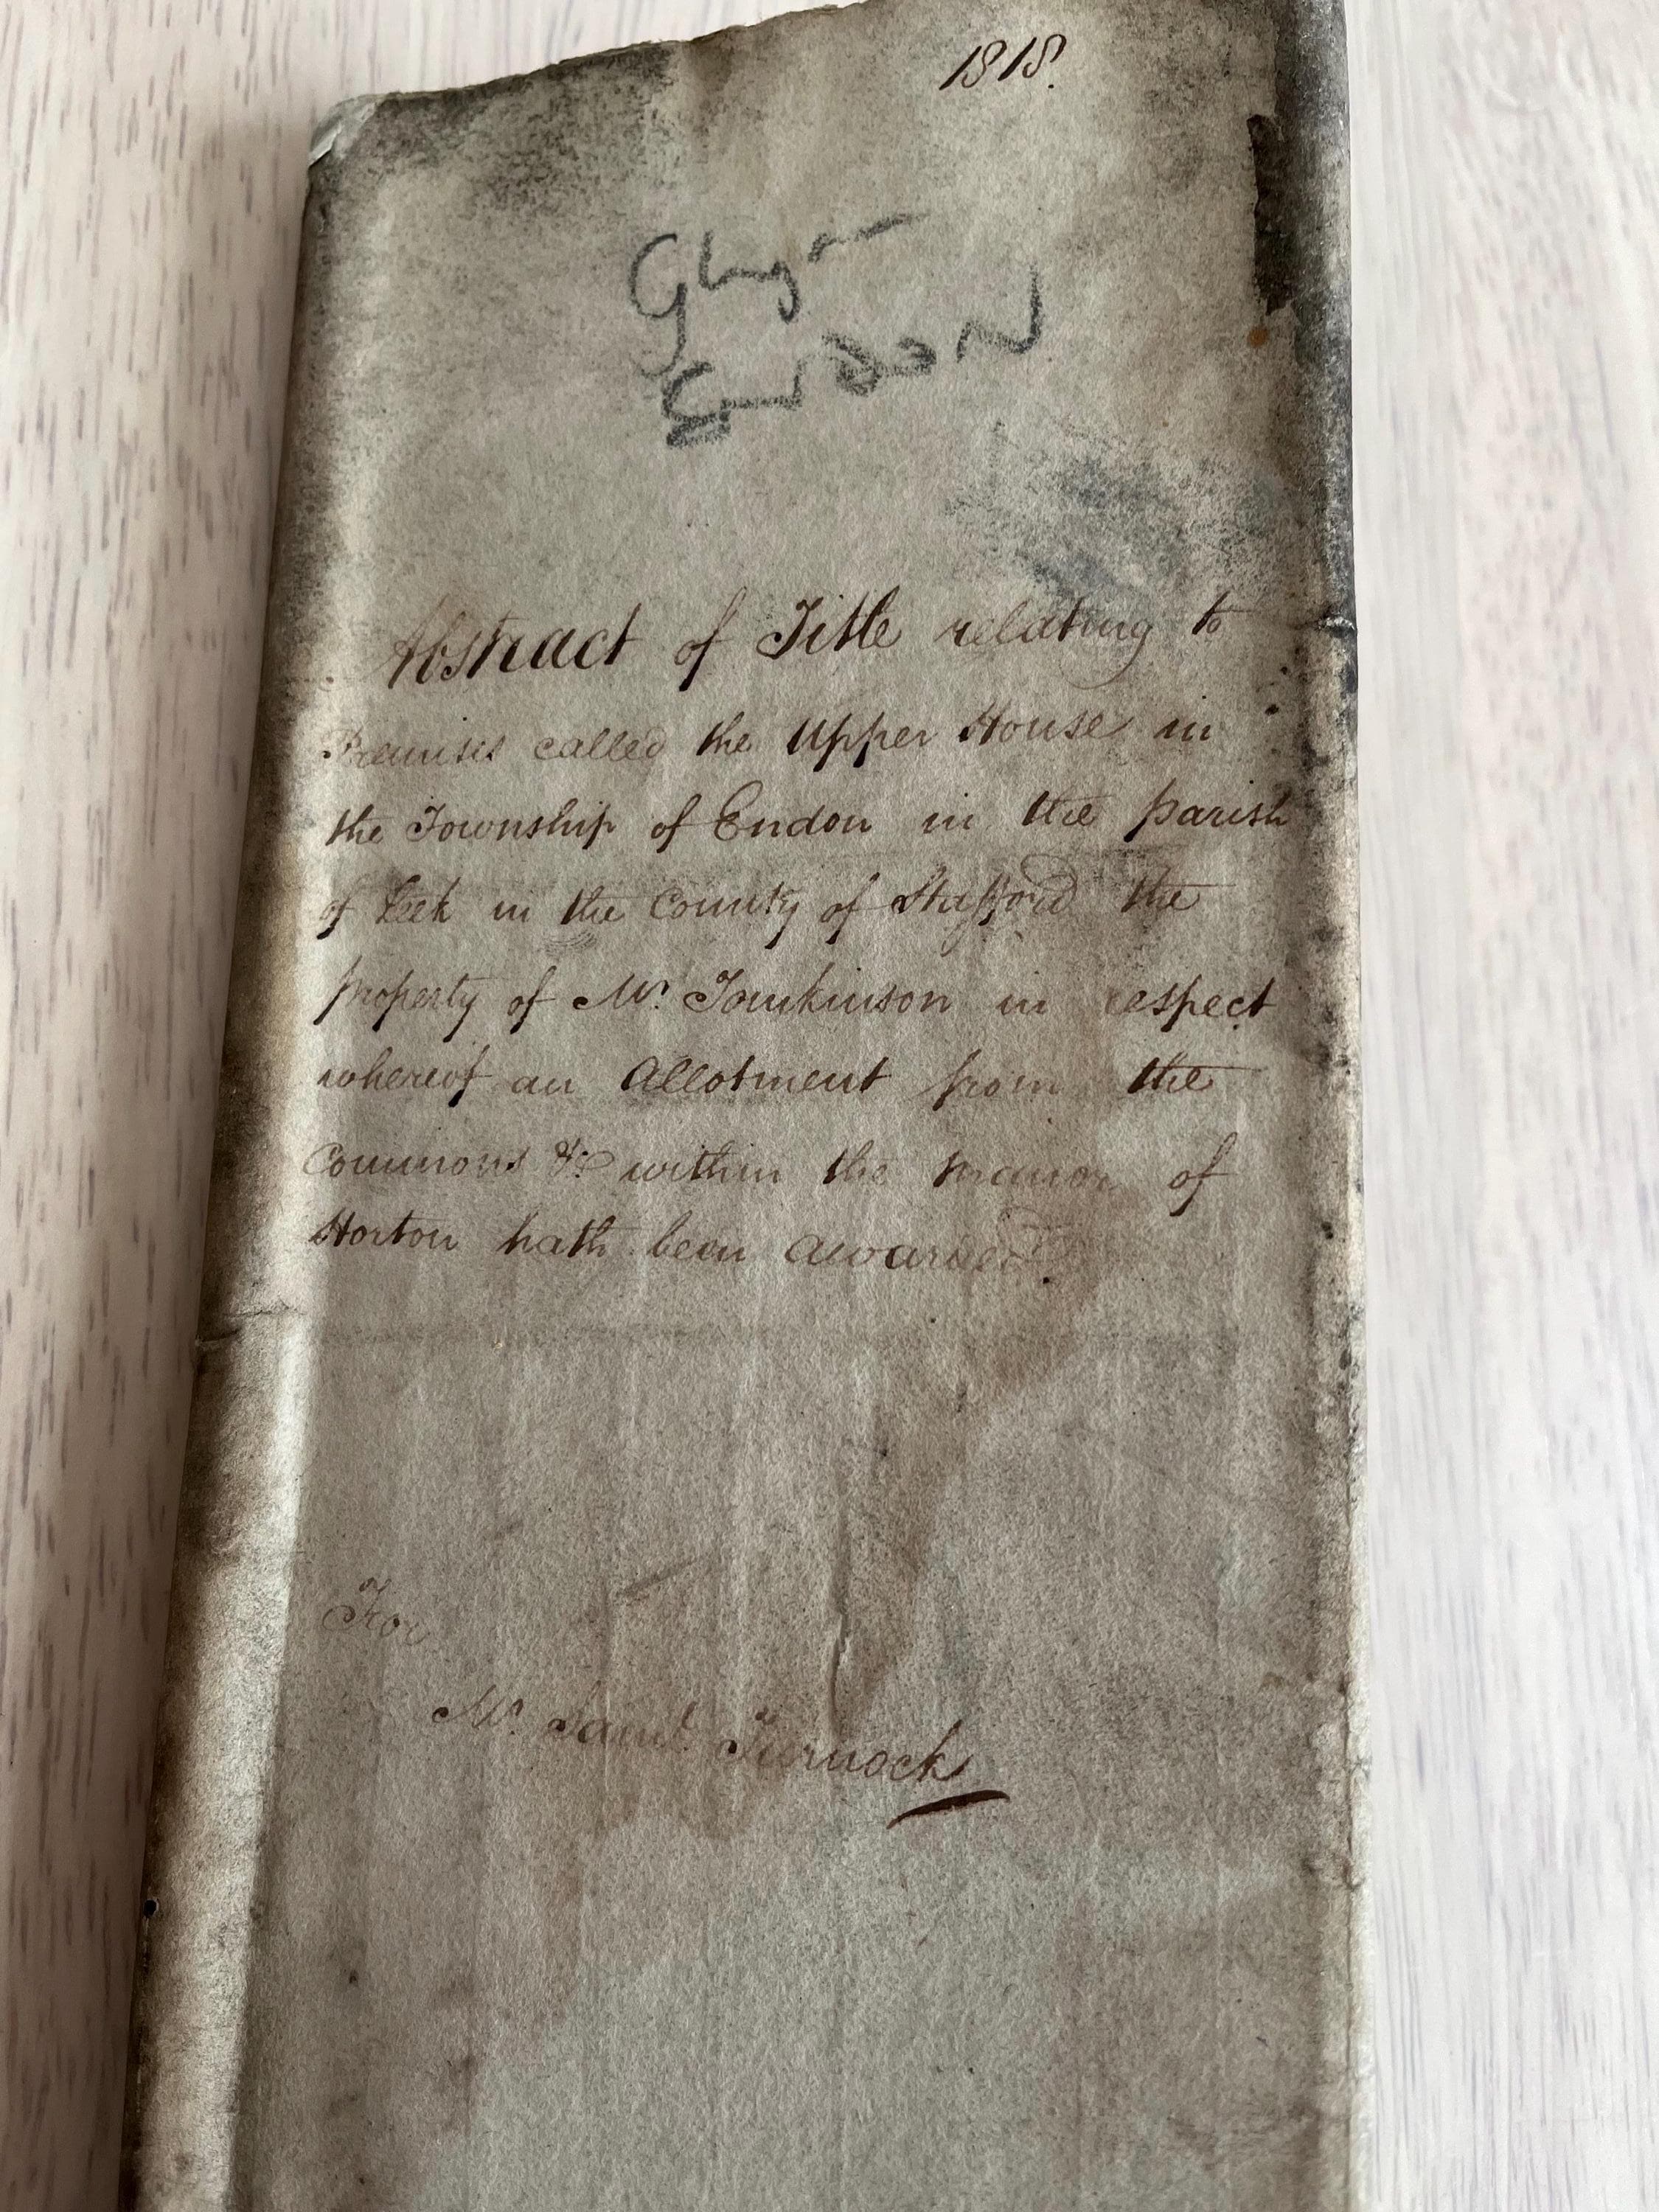 1818.
ENDON
Abstract of Title relating to
Premises called the Upper House in
the Township of Endon in the parish
of Leek in the County of Stafford the
property of Mr. Tomkinson in respect
whereof an Allotment from the
Commons &c within the manor of
Horton hath been awarded.
For
Mr. Saml. Turnock